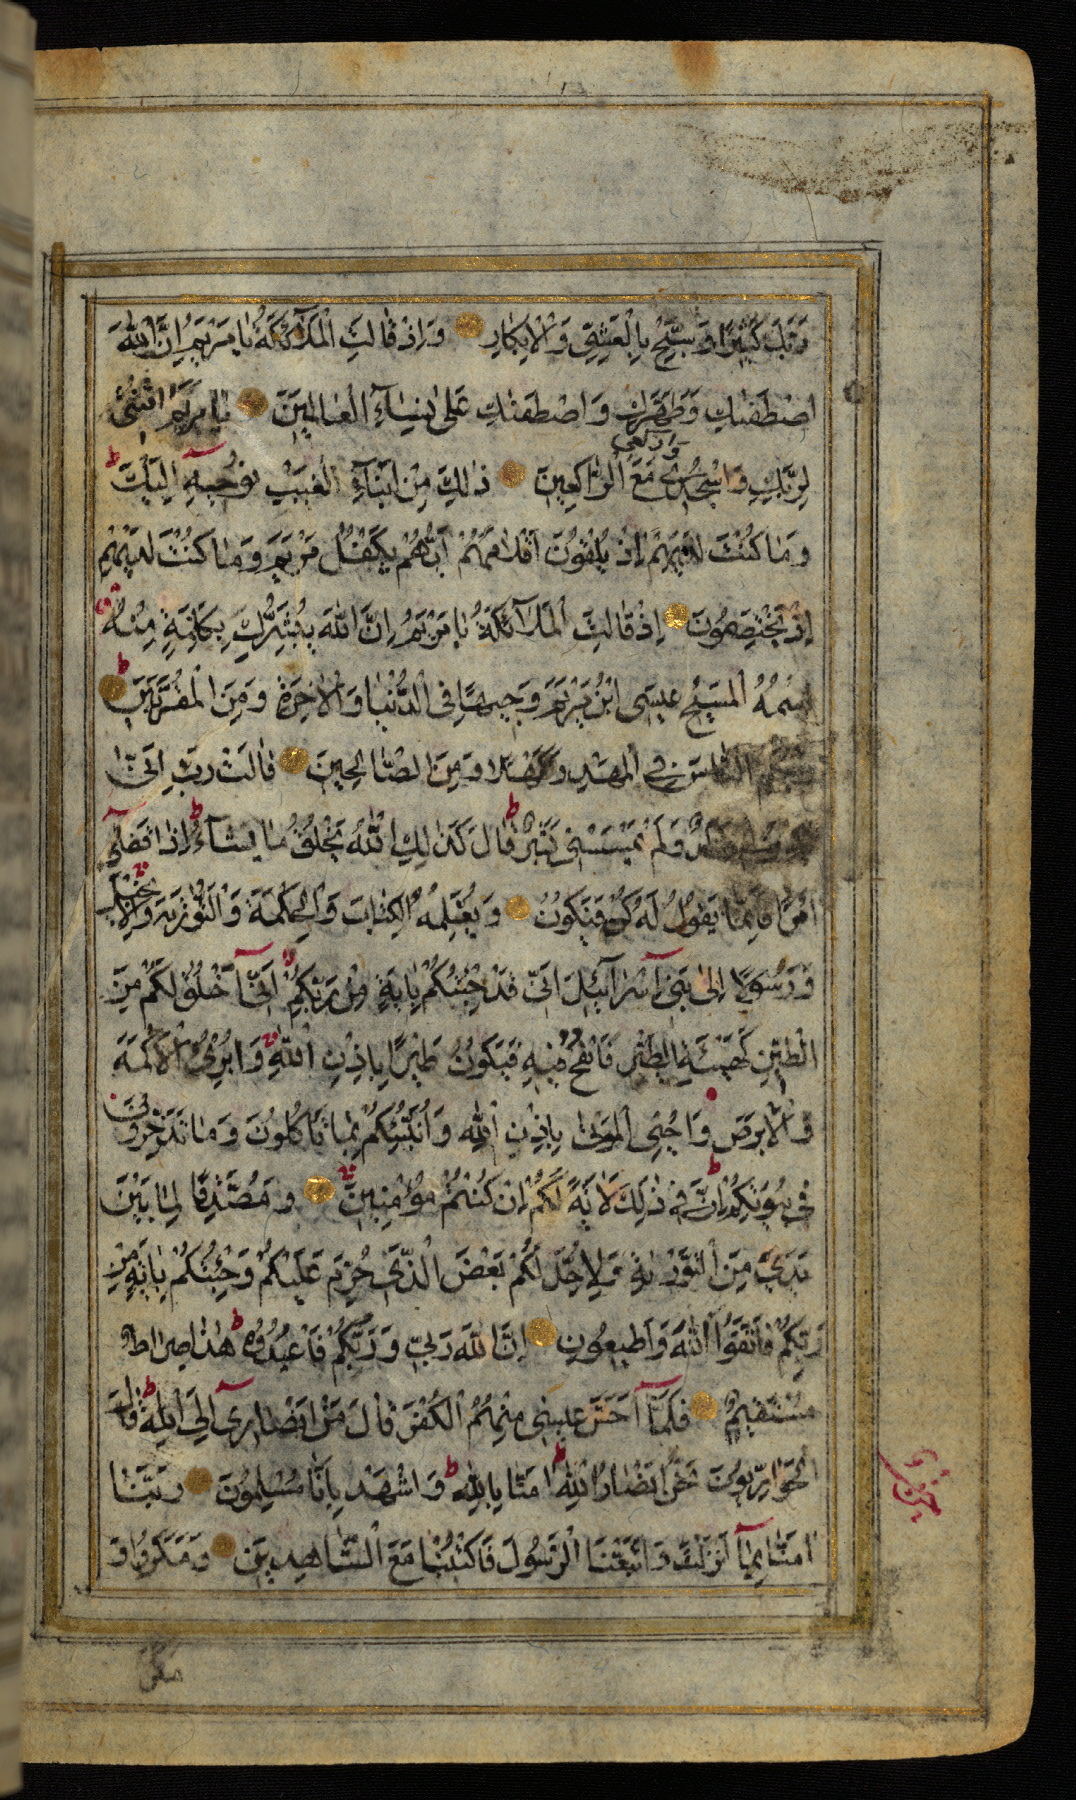 رَبَّكَ كَثِيرًا وَسَبِّحْ بِالْعَشِيِّ وَالْاِبْكَارِ وَاِذْ قَالَتِ الْمَلٰٓائِكَةُ يَا مَرْيَمُ اِنَّ اللّٰهَ
اصْطَفٰيكِ وَطَهَّرَكِ وَاصْطَفٰيكِ عَلٰى نِسَآءِ الْعَالَمِينَ يَا مَرْيَمُ اقْنُتِي
لِرَبِّكِ وَاسْجُدِي وَارْكَعِي مَعَ الرَّاكِعِينَ ذٰلِكَ مِنْ اَنْبَآءِ الْغَيْبِ نُوحِيهِ اِلَيْكَ ط
وَمَا كُنْتَ لَدَيْهِمْ اِذْ يُلْقُونَ اَقْلَامَهُمْ اَيُّهُمْ يَكْفُلُ مَرْيَمَ وَمَا كُنْتَ لَدَيْهِمْ
اِذْ يَخْتَصِمُونَ اِذْ قَالَتِ الْمَلَآئِكَةُ يَا مَرْيَمُ اِنَّ اللّٰهَ يُبَشِّرُكِ بِكَلِمَةٍ مِنْهُ
اسْمُهُ الْمَسِيحُ عِيسَى ابْنُ مَرْيَمَ وَجِيهًا فِي الدُّنْيَا وَالْاٰخِرَةِ وَمِنَ الْمُقَرَّبِينَ ط
وَيُكَلِّمُ النَّاسَ فِي الْمَهْدِ وَكَهْلًا وَمِنَ الصَّالِحِينَ قَالَتْ رَبِّ اَنّٰى
وَلَدٌ وَلَمْ يَمْسَسْنِي بَشَرٌ ط قَالَ كَذٰلِكِ اللّٰهُ يَخْلُقُ مَا يَشَآءُ ط اِذَا قَضٰى
اَمْرًا فَاِنَّمَا يَقُولُ لَهُ كُنْ فَيَكُونُ وَيُعَلِّمُهُ الْكِتَابَ وَالْحِكْمَةَ وَالتَّوْرٰيةَ وَالْاِنْجِيلَ
وَرَسُولًا اِلٰى بَنِي اِسْرَآئِيلَ اَنِّي قَدْ جِئْتُكُمْ بِاٰيَةٍ مِنْ رَبِّكُمْ اَنِّي اَخْلُقُ لَكُمْ مِنَ
الطِّينِ كَهَيْئَةِ الطَّيْرِ فَاَنْفُخُ فِيهِ فَيَكُونُ طَيْرًا بِاِذْنِ اللّٰهِ وَاُبْرِئُ الْاَكْمَهَ
وَالْاَبْرَصَ وَاُحْيِي الْمَوْتٰى بِاِذْنِ اللّٰهِ وَاُنَبِّئُكُمْ بِمَا تَأْكُلُونَ وَمَا تَدَّخِرُونَ
فِي بُيُوتِكُمْ ط اِنَّ فِي ذٰلِكَ لَاٰيَةً لَكُمْ اِنْ كُنْتُمْ مُؤْمِنِينَ وَمُصَدِّقًا لِمَا بَيْنَ
يَدَيَّ مِنَ التَّوْرٰيةِ وَلِاُحِلَّ لَكُمْ بَعْضَ الَّذِي حُرِّمَ عَلَيْكُمْ وَجِئْتُكُمْ بِاٰيَةٍ مِنْ
رَبِّكُمْ فَاتَّقُوا اللّٰهَ وَاَطِيعُونِ اِنَّ اللّٰهَ رَبِّي وَرَبُّكُمْ فَاعْبُدُوهُ ط هٰذَا صِرَاطٌ
مُسْتَقِيمٌ فَلَمَّآ اَحَسَّ عِيسٰى مِنْهُمُ الْكُفْرَ قَالَ مَنْ اَنْصَارِي اِلَى اللّٰهِ ط قَالَ
الْحَوَارِيُّونَ نَحْنُ اَنْصَارُ اللّٰهِ ط اٰمَنَّا بِاللّٰهِ ط وَاشْهَدْ بِاَنَّا مُسْلِمُونَ رَبَّنَا
اٰمَنَّا بِمَآ اَنْزَلْتَ وَاتَّبَعْنَا الرَّسُولَ فَاكْتُبْنَا مَعَ الشَّاهِدِينَ وَمَكَرُوا وَ
مكر